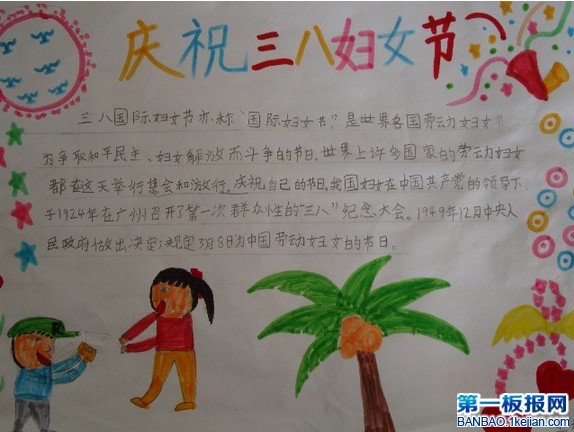 庆祝三八妇女节
三八国际妇女节亦称“国际妇女节”,是世界各国劳动妇女
为争取和平民主、妇女解放而斗争的节日,世界上许多国家的劳动妇女
都在这天举行集会和游行,庆祝自己的节日,我国妇女在中国共产党的领导下
于1924年在广州召开了第一次群众性的“三八”纪念大会。1949年12月中央人
民政府做出决定:规定3月8日为中国劳动妇女的节日。
第一板报网
BANBAO.1kejian.com